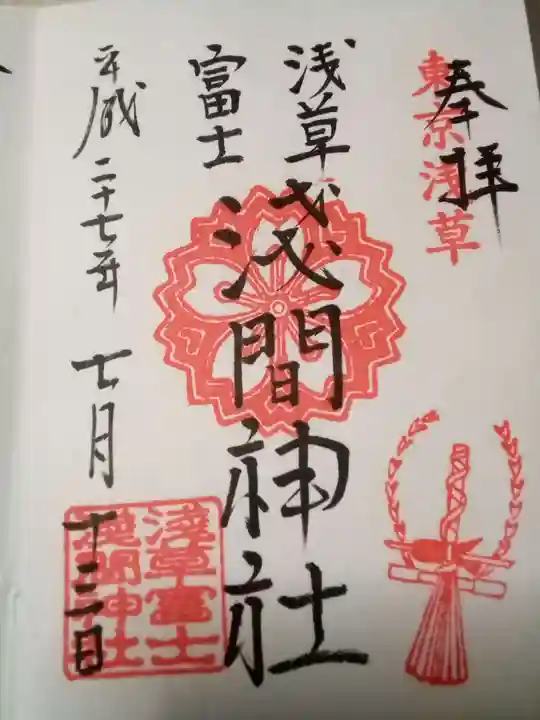 奉拝
東京浅草
浅草
富士
淺間神社
平成二十七年七月十三日
淺草富士
淺間神社